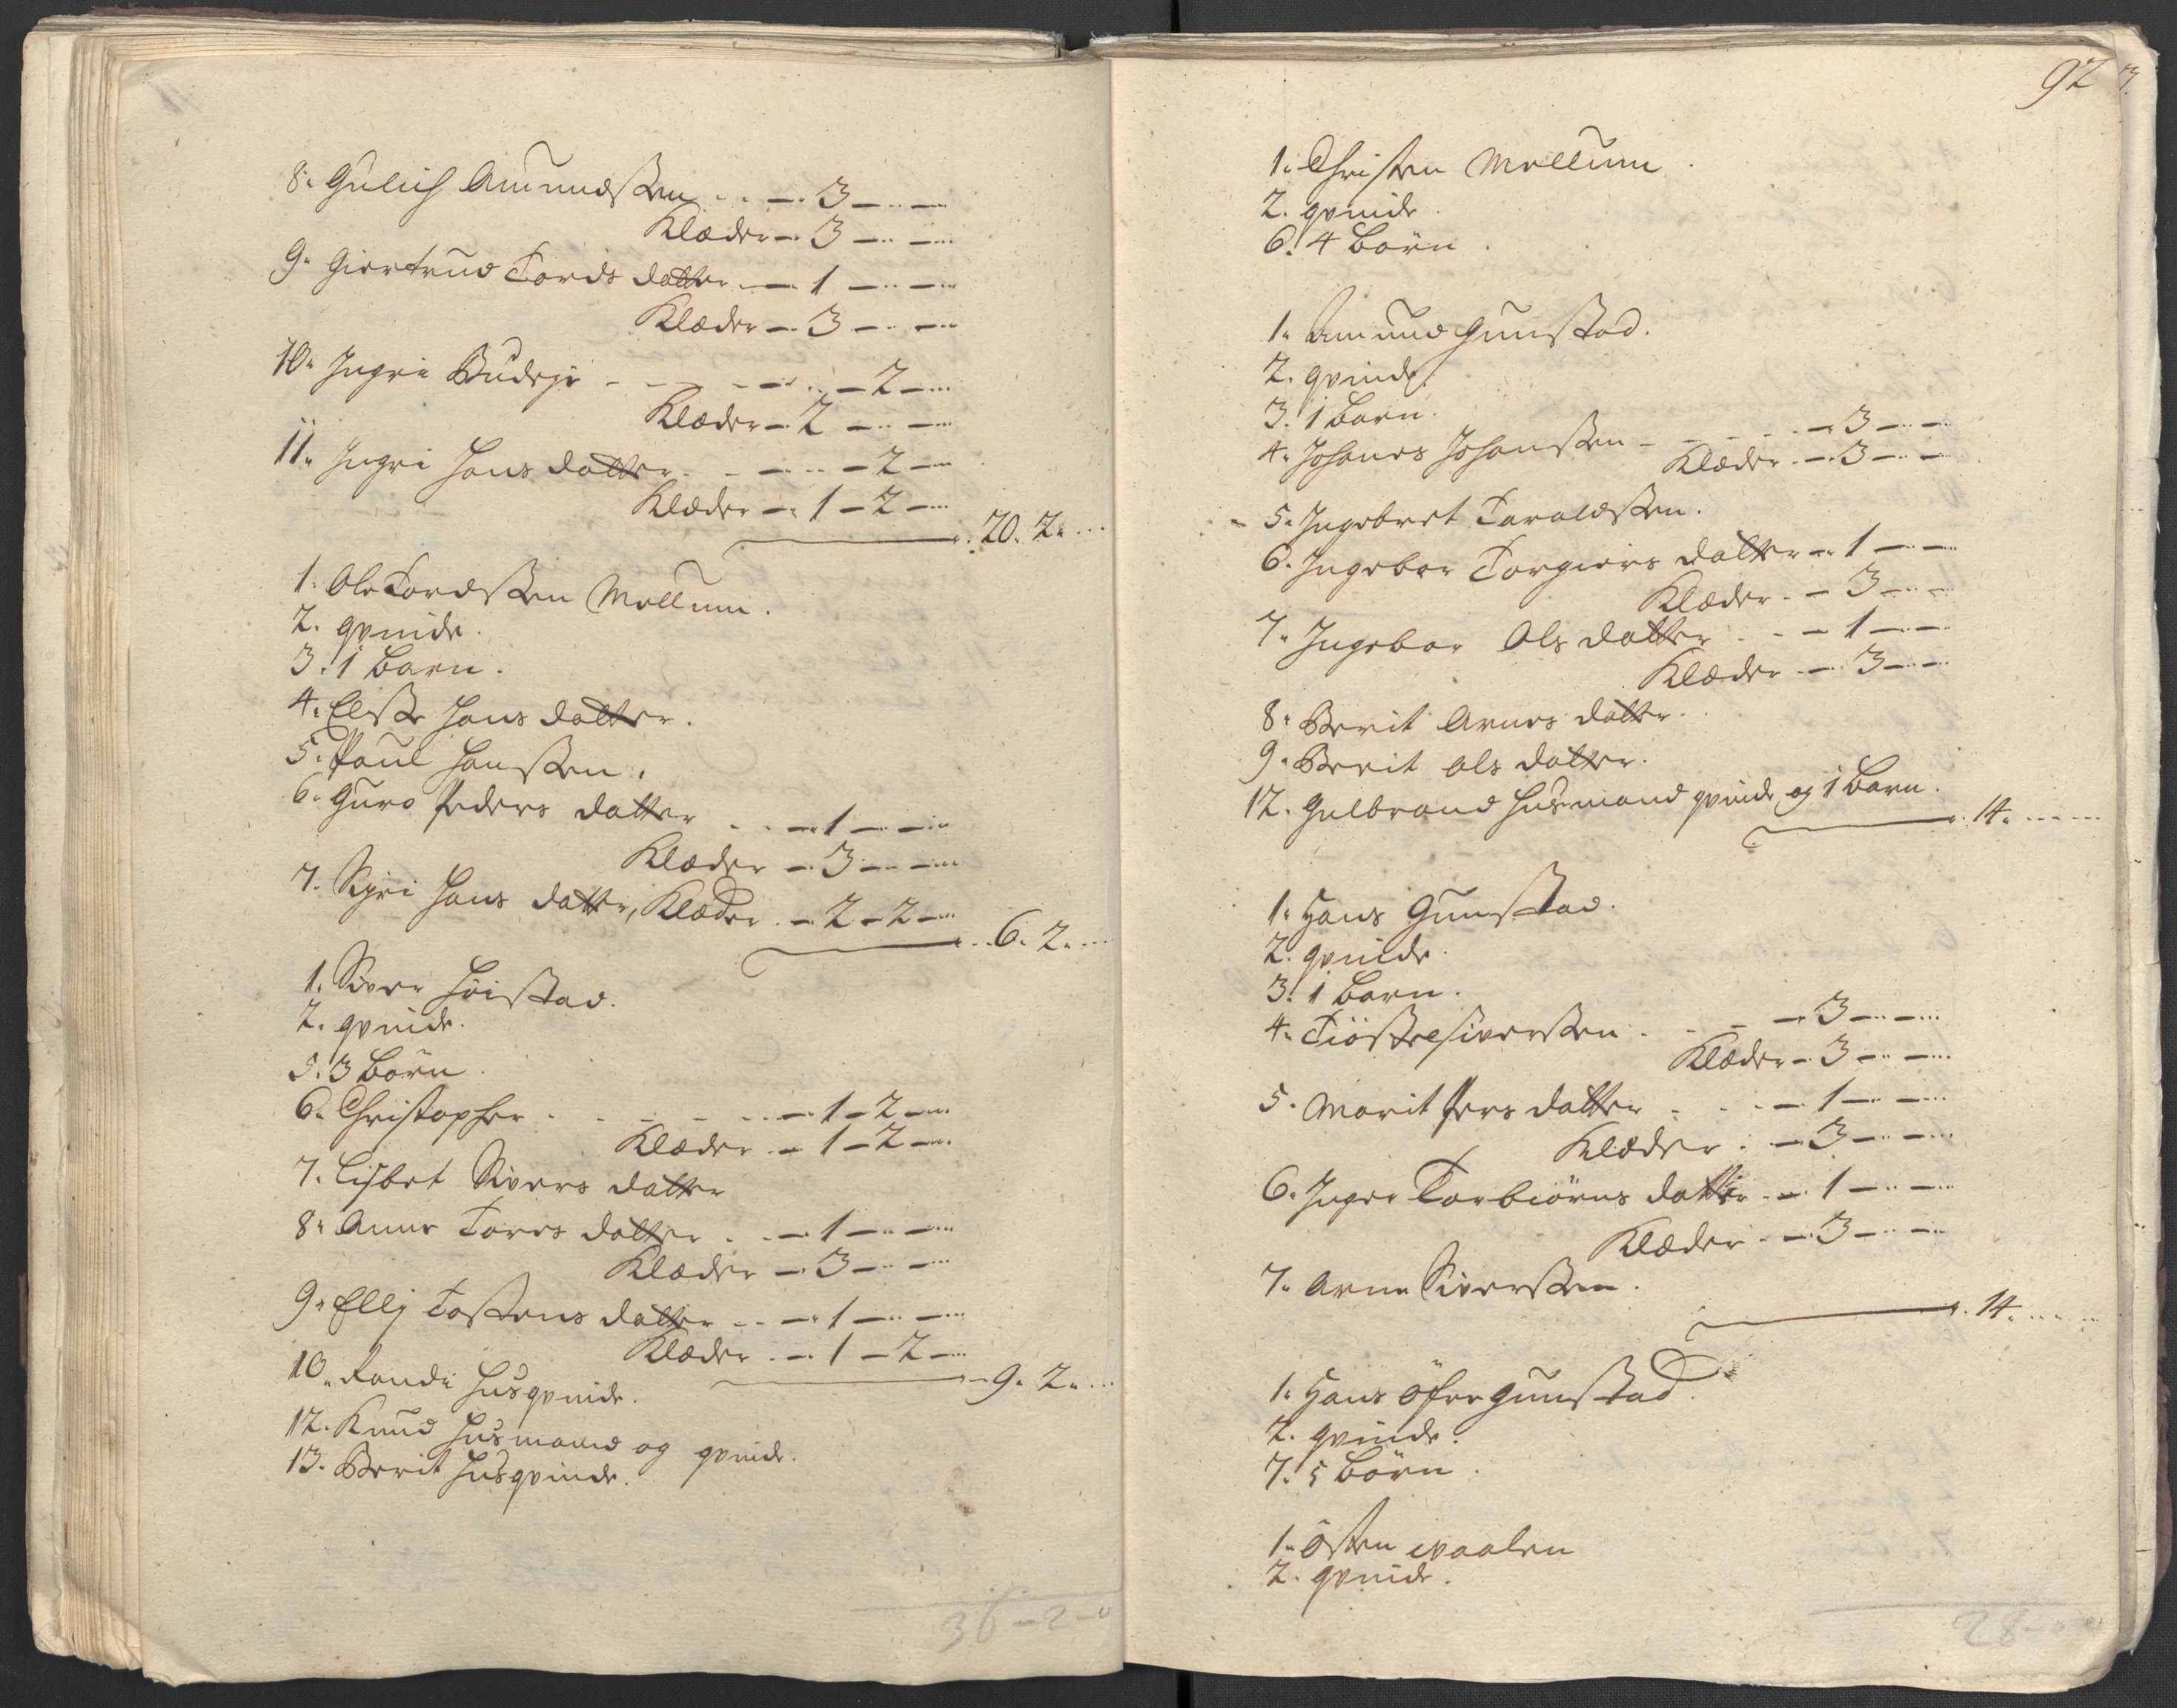 8. Gulich Amundssen - - - 3 - -
Klæder - 3 - -
9. Giertrud Tords datter - 1 - -
Klæder - 3 - -
10. Ingri Budeje - - - - 2 -
Klæder - 2 - -
11. Ingri Hans datter - - - 2 -
Klæder - 1 - 2 -
20. 2. ...
1. Ole Tordssen Mellum.
2. qvinde.
3. 1 Barn.
4. Elsse Hans datter.
5. Paul Hanssen.
6. Guro Peders datter - - 1 - -
Klæder - 3 - -
7. Siri Hans datter, Klæder - 2 - 2 -
6. 2. ...
1. Siver Höistad.
2. qvinde.
5. 3 Börn.
6. Christopher - - - - 1 - 2 -
Klæder - 1 - 2 -
7. Lisbet Sivers datter
8. Anne Tores datter - - 1 - -
Klæder - 3 - -
9. Elli Tostens datter - - 1 - -
Klæder - 1 - 2 -
9. 2. ...
10. Randi Husqvinde.
12. Knud Husmand og qvinde.
13. Berit Husqvinde.
36 - 2 - 0
92
1. Christen Mellum.
2. qvinde.
6. 4 Börn.
1. Amund Gunstad.
2. qvinde.
3. 1 Barn.
4. Johanes Johanssen - - - 3 - -
Klæder - 3 - -
5. Ingebret Taraldssen.
6. Ingebor Torgiers datter - 1 - -
Klæder - 3 - -
7. Ingebor Ols datter - - 1 - -
Klæder - 3 - -
8. Berit Arnes datter.
9. Berit Ols datter.
12. Gulbrand Husmand qvinde og 1 Barn.
14. ...
1. Hans Gunstad.
2. qvinde.
3. 1 Barn.
4. Tiöstel Siverssen - - 3 - -
Klæder - 3 - -
5. Marit Pers datter - - 1 - -
Klæder - 3 - -
6. Inger Torbiörns datter - 1 - -
Klæder - 3 - -
7. Arne Siverssen.
14. ...
1. Hans Öfre Gunstad.
2. qvinde.
7. 5 Börn.
1. Östen Waalen
2. qvinde.
28